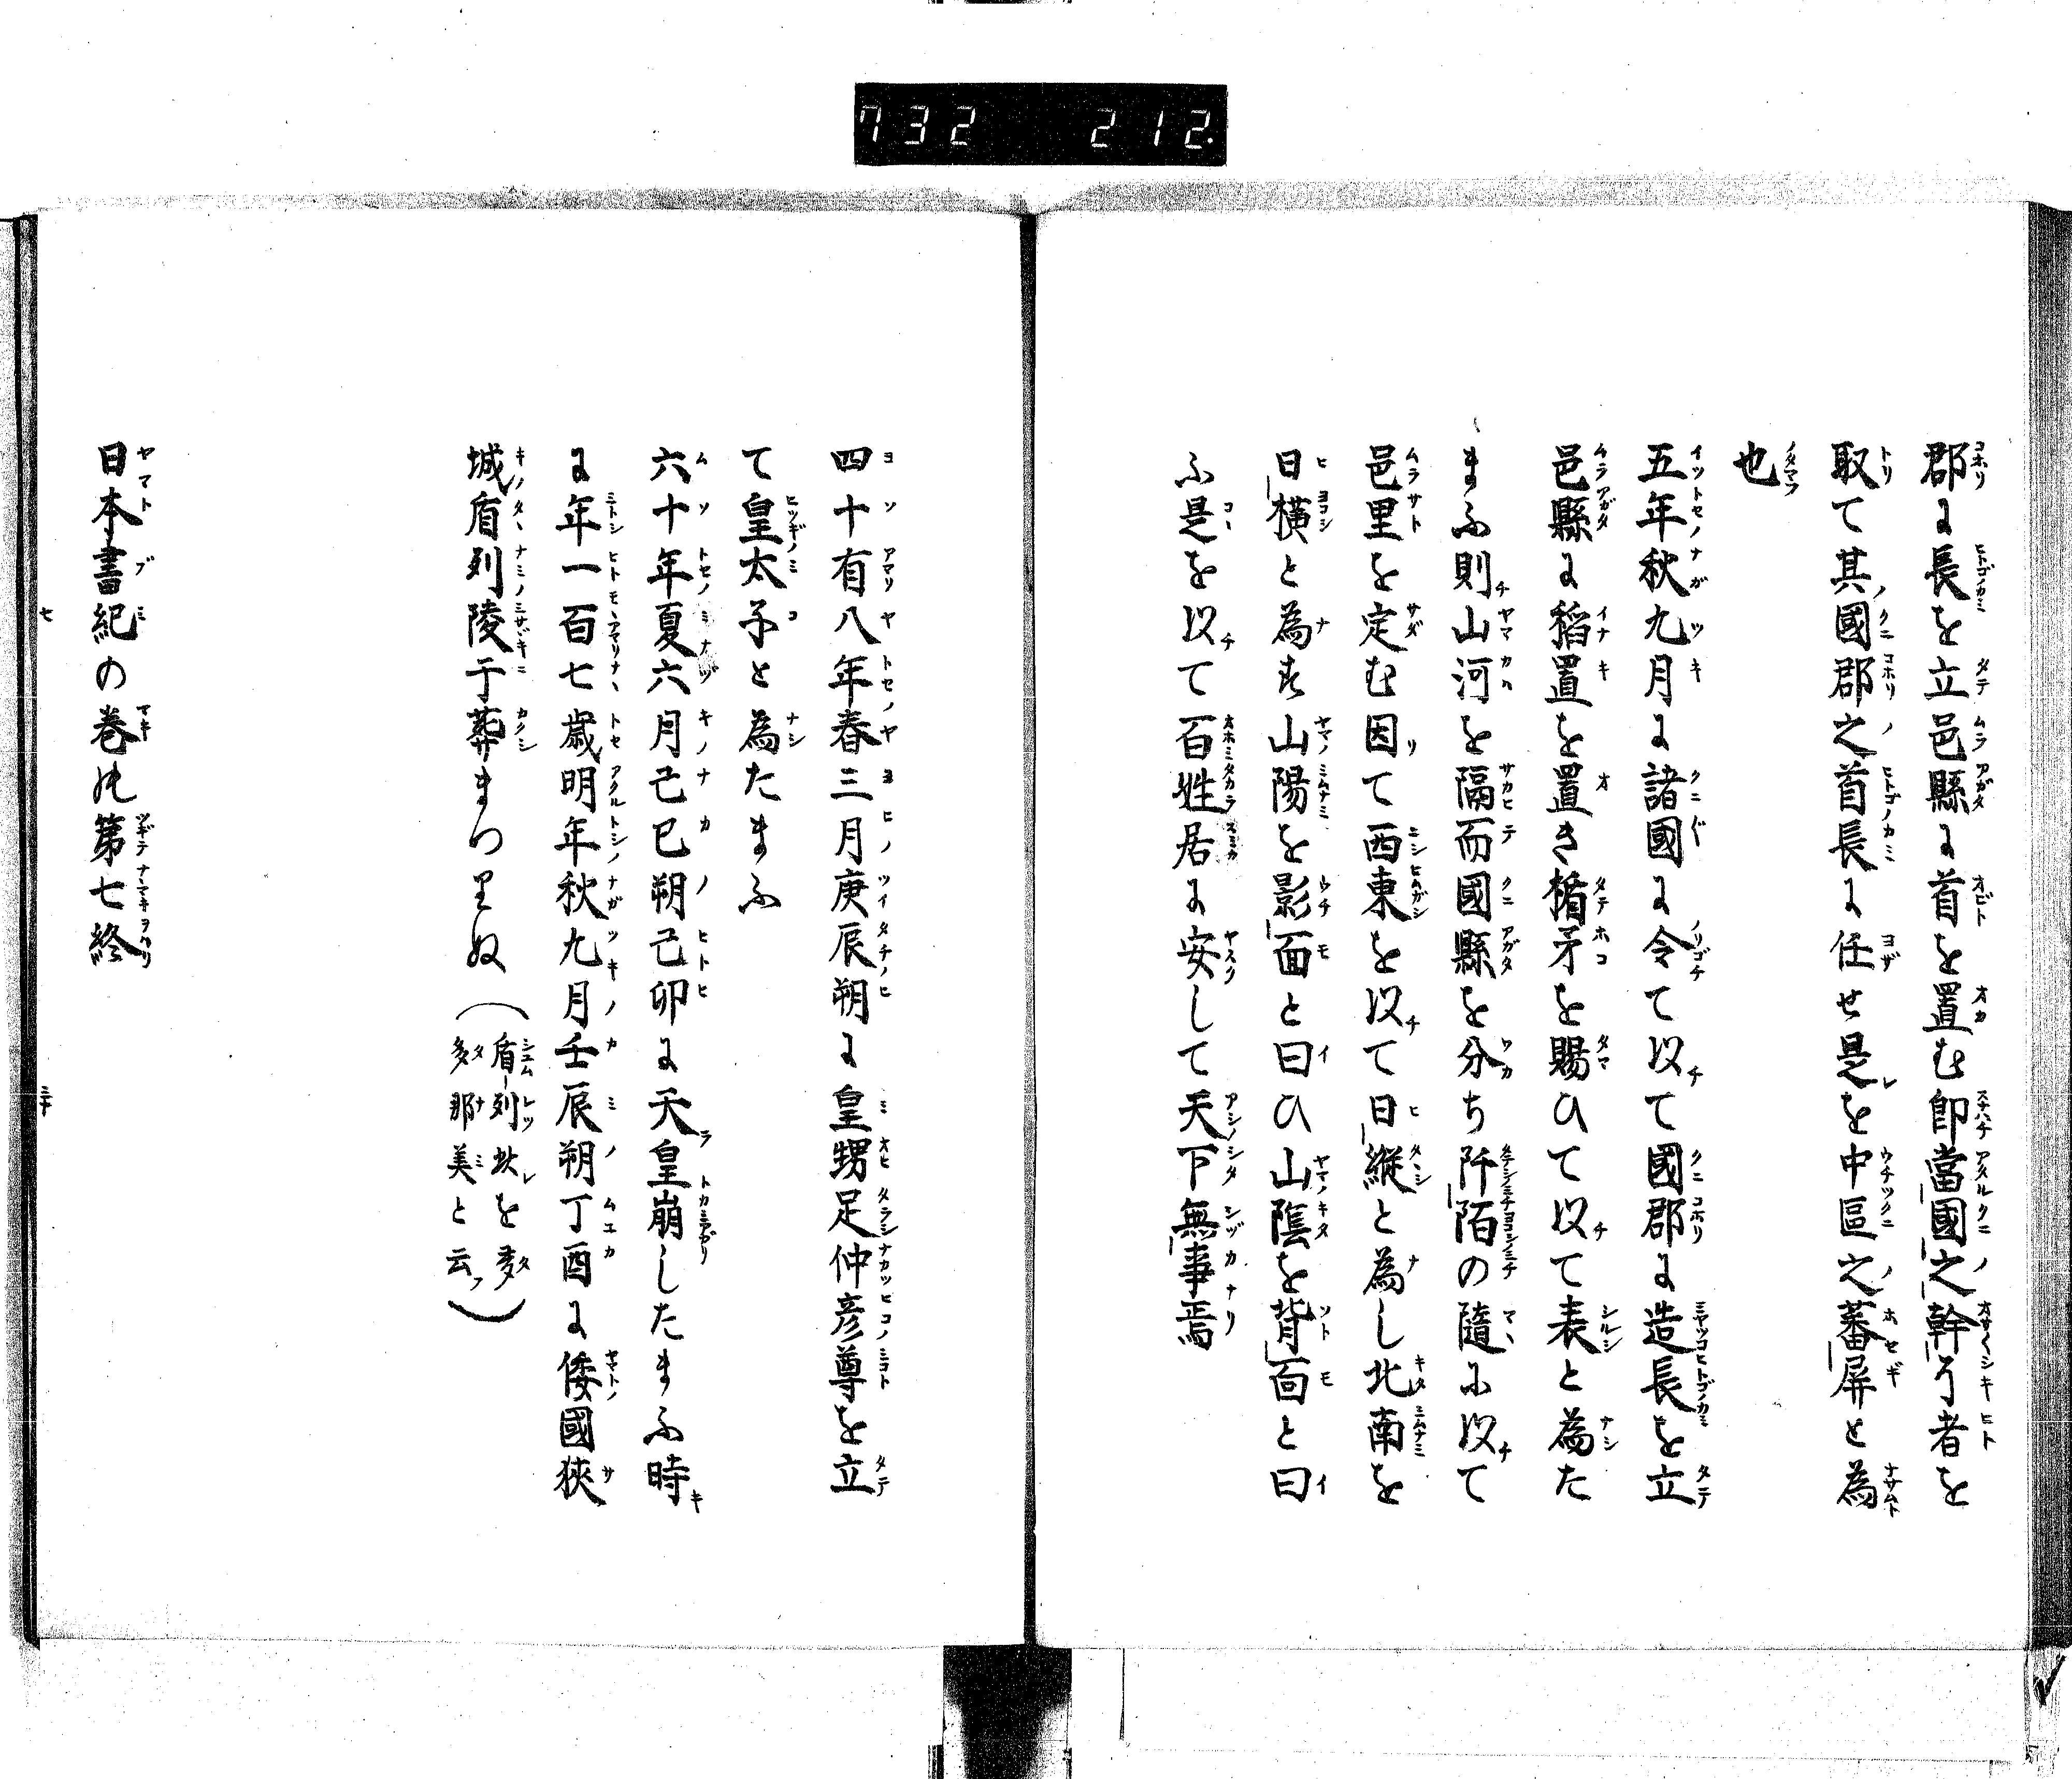 732 212
郡に長を立邑縣に首を置む卽當國之幹う者を
取て其國郡之首長に任せ是を中區之蕃屏と為
也
五年秋九月に諸國に令て以て國郡に造長を立
邑縣に稻置を置き楯矛を賜ひて以て表と為た
まふ則山河を隔而國縣を分ち阡陌の隨に以て
邑里を定む因て西東を以て日縱と為し北南を
日橫と為す山陽を影面と曰ひ山陰を背面と曰
ふ是を以て百姓居に安して天下無事焉
四十有八年春三月庚辰朔に皇甥足仲彦尊を立
て皇太子と為たまふ
六十年夏六月己巳朔己卯に天皇崩したまふ時
に年一百七歳明年秋九月壬辰朔丁酉に倭國狹
城盾列陵于葬まつりぬ(盾列此を多
多那美と云)
日本書紀の巻㐧第七終
七 三十